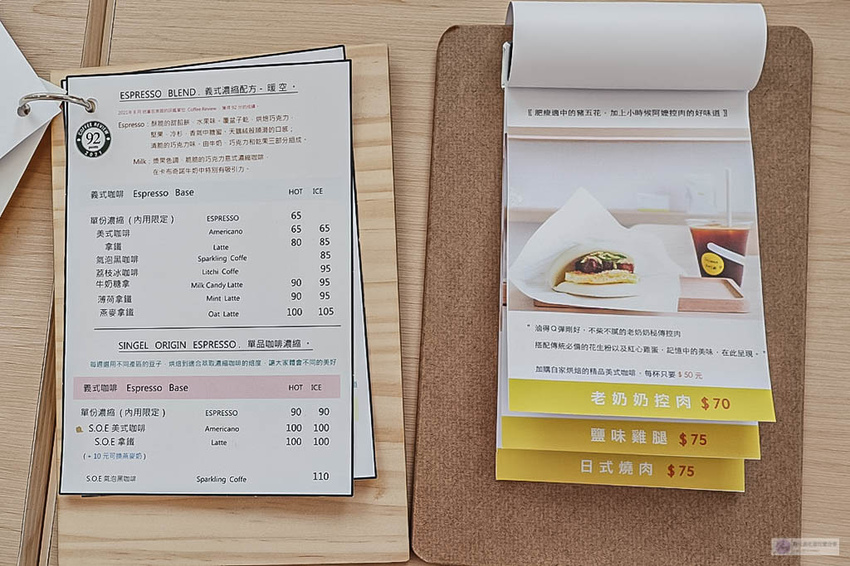 ESPRESSO BLEND. 義式濃縮配方 - 暖空.
COFFEE REVIEW
92
2021
Espresso:酥脆的甜餡餅、水果味、覆盆子乾、烘焙巧克力;
堅果、冷杉,香氣中糖蜜,天鵝絨般順滑的口感;
清脆的巧克力味,由牛奶、巧克力和乾果三部分組成。
Milk:漿果色調,脆脆的巧克力意式濃縮咖啡,
在卡布奇諾牛奶中特別有吸引力。
義式咖啡 Espresso Base HOT ICE
單份濃縮(內用限定) ESPRESSO 65
美式咖啡 Americano 65 65
拿鐵 Latte 80 85
氣泡黑咖啡 Sparkling Coffe 85
荔枝冰咖啡 Litchi Coffe 95
牛奶糖拿 Milk Candy Latte 90 95
薄荷拿鐵 Mint Latte 90 95
燕麥拿鐵 Oat Latte 100 105
SINGEL ORIGIN ESPRESSO. 單品咖啡濃縮.
每週選用不同產區的豆子,烘焙到適合萃取濃縮咖啡的焙度,讓大家體會不同的美好
義式咖啡 Espresso Base HOT ICE
單份濃縮(內用限定) ESPRESSO 90 90
S.O.E 美式咖啡 Americano 100 100
S.O.E 拿鐵 Latte 100 100
(+10元可換燕麥奶)
S.O.E 氣泡黑咖啡 Sparkling Coffe 110
〖 肥瘦適中的豬五花,加上小時候阿嬤控肉的好味道 〗
" 油得Q彈剛好,不柴不膩的老奶奶秘傳控肉
搭配傳統必備的花生粉以及紅心雞蛋,記憶中的美味,在此呈現。"
加購自家烘焙的精品美式咖啡,每杯只要 $50元
老奶奶控肉 $70
鹽味雞腿 $75
日式燒肉 $75